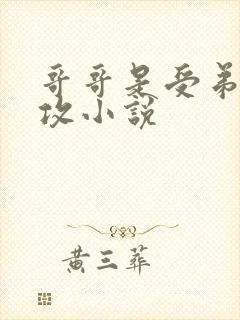 哥哥是受弟
攻小说
黄三葬